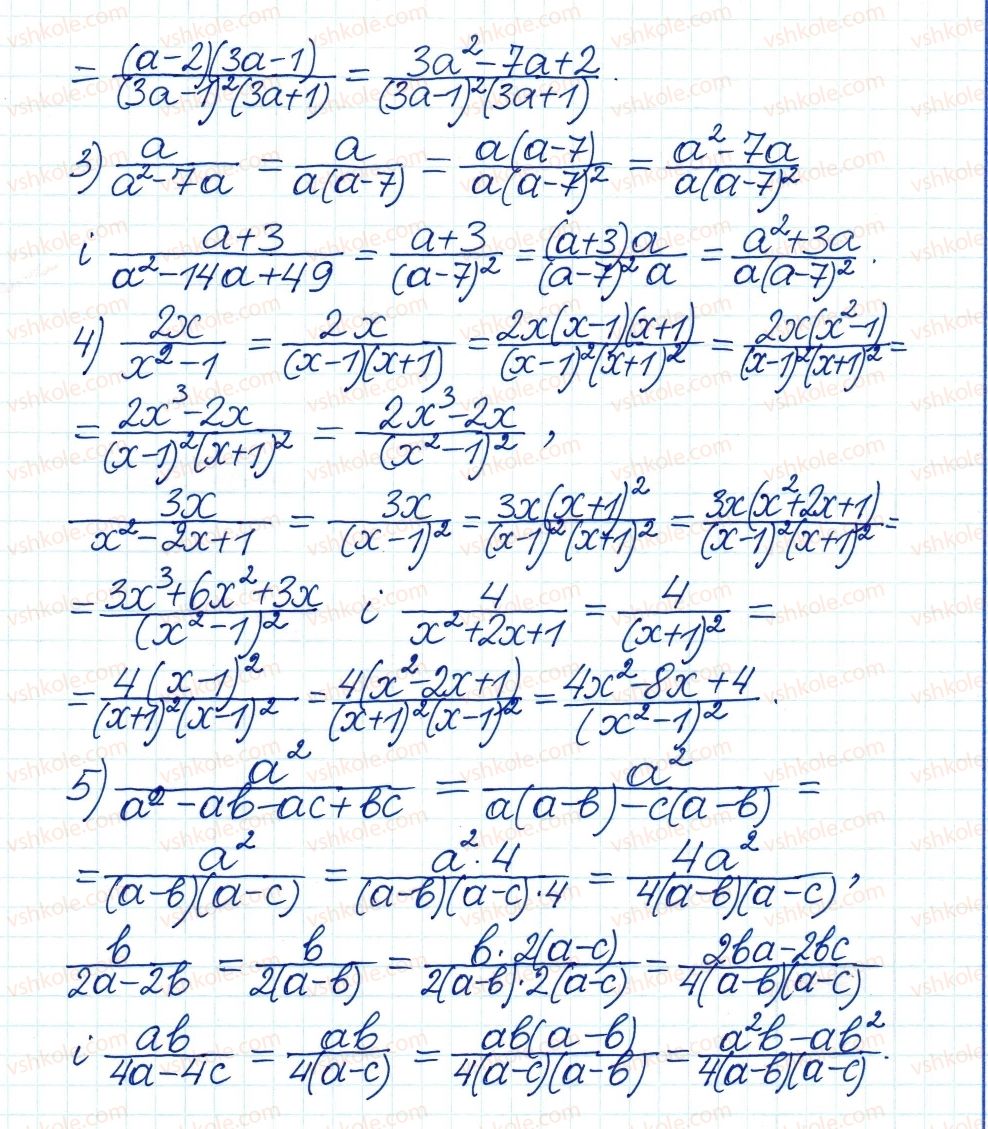 = (a-2)(3a-1)/(3a-1)²(3a+1) = 3a²-7a+2/(3a-1)²(3a+1).
3) a/a²-7a = a/a(a-7) = a(a-7)/a(a-7)² = a²-7a/a(a-7)²
і a+3/a²-14a+49 = a+3/(a-7)² = (a+3)a/(a-7)²a = a²+3a/a(a-7)².
4) 2x/x²-1 = 2x/(x-1)(x+1) = 2x(x-1)(x+1)/(x-1)²(x+1)² = 2x(x²-1)/(x-1)²(x+1)² =
= 2x³-2x/(x-1)²(x+1)² = 2x³-2x/(x²-1)²,
3x/x²-2x+1 = 3x/(x-1)² = 3x(x+1)²/(x-1)²(x+1)² = 3x(x²+2x+1)/(x-1)²(x+1)² =
= 3x³+6x²+3x/(x²-1)² і 4/x²+2x+1 = 4/(x+1)² =
= 4(x-1)²/(x+1)²(x-1)² = 4(x²-2x+1)/(x+1)²(x-1)² = 4x²-8x+4/(x²-1)².
5) a²/a²-ab-ac+bc = a²/a(a-b)-c(a-b) =
= a²/(a-b)(a-c) = a²·4/(a-b)(a-c)·4 = 4a²/4(a-b)(a-c),
b/2a-2b = b/2(a-b) = b·2(a-c)/2(a-b)·2(a-c) = 2ba-2bc/4(a-b)(a-c)
і ab/4a-4c = ab/4(a-c) = ab(a-b)/4(a-c)(a-b) = a²b-ab²/4(a-b)(a-c).
vshkole.com